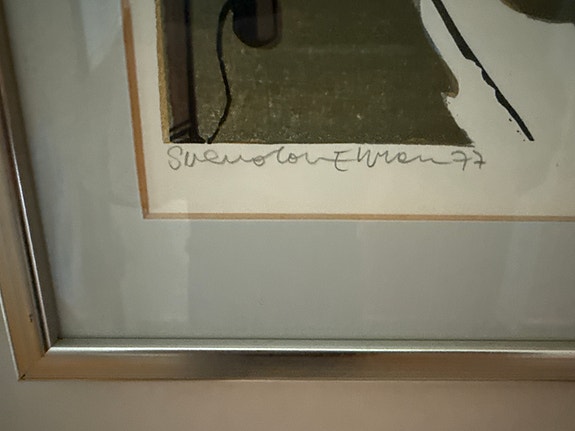 Svenolov Ehrén 77